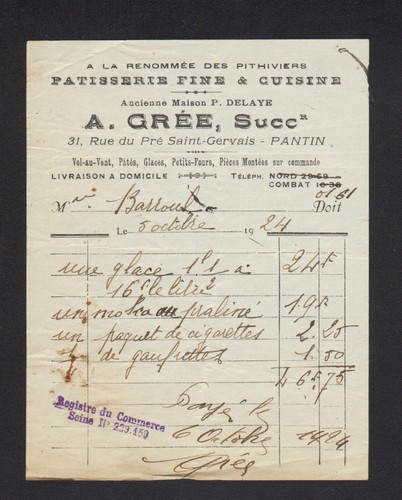 A LA RENOMMÉE DES PITHIVIERS
PATISSERIE FINE & CUISINE
Ancienne Maison P. DELAYE
A. GRÉE, Succr
31, Rue du Pré Saint-Gervais - PANTIN
Vol-au-Vent, Pâtés, Glaces, Petits-Fours, Pièces Montées sur commande
LIVRAISON A DOMICILE TÉLÉPH. NORD 29-69
COMBAT 10-36
01 61
M Doit
Le 5 octobre 1924
une glace 1l 1 a 24f
16f le litre
un moka praliné 19f
un paquet de cigarettes 2.25
de gaufrettes 1.50
46f 75
Registre du Commerce
Seine No 239.159
Payé le
6 Octobre 1924
AGrée